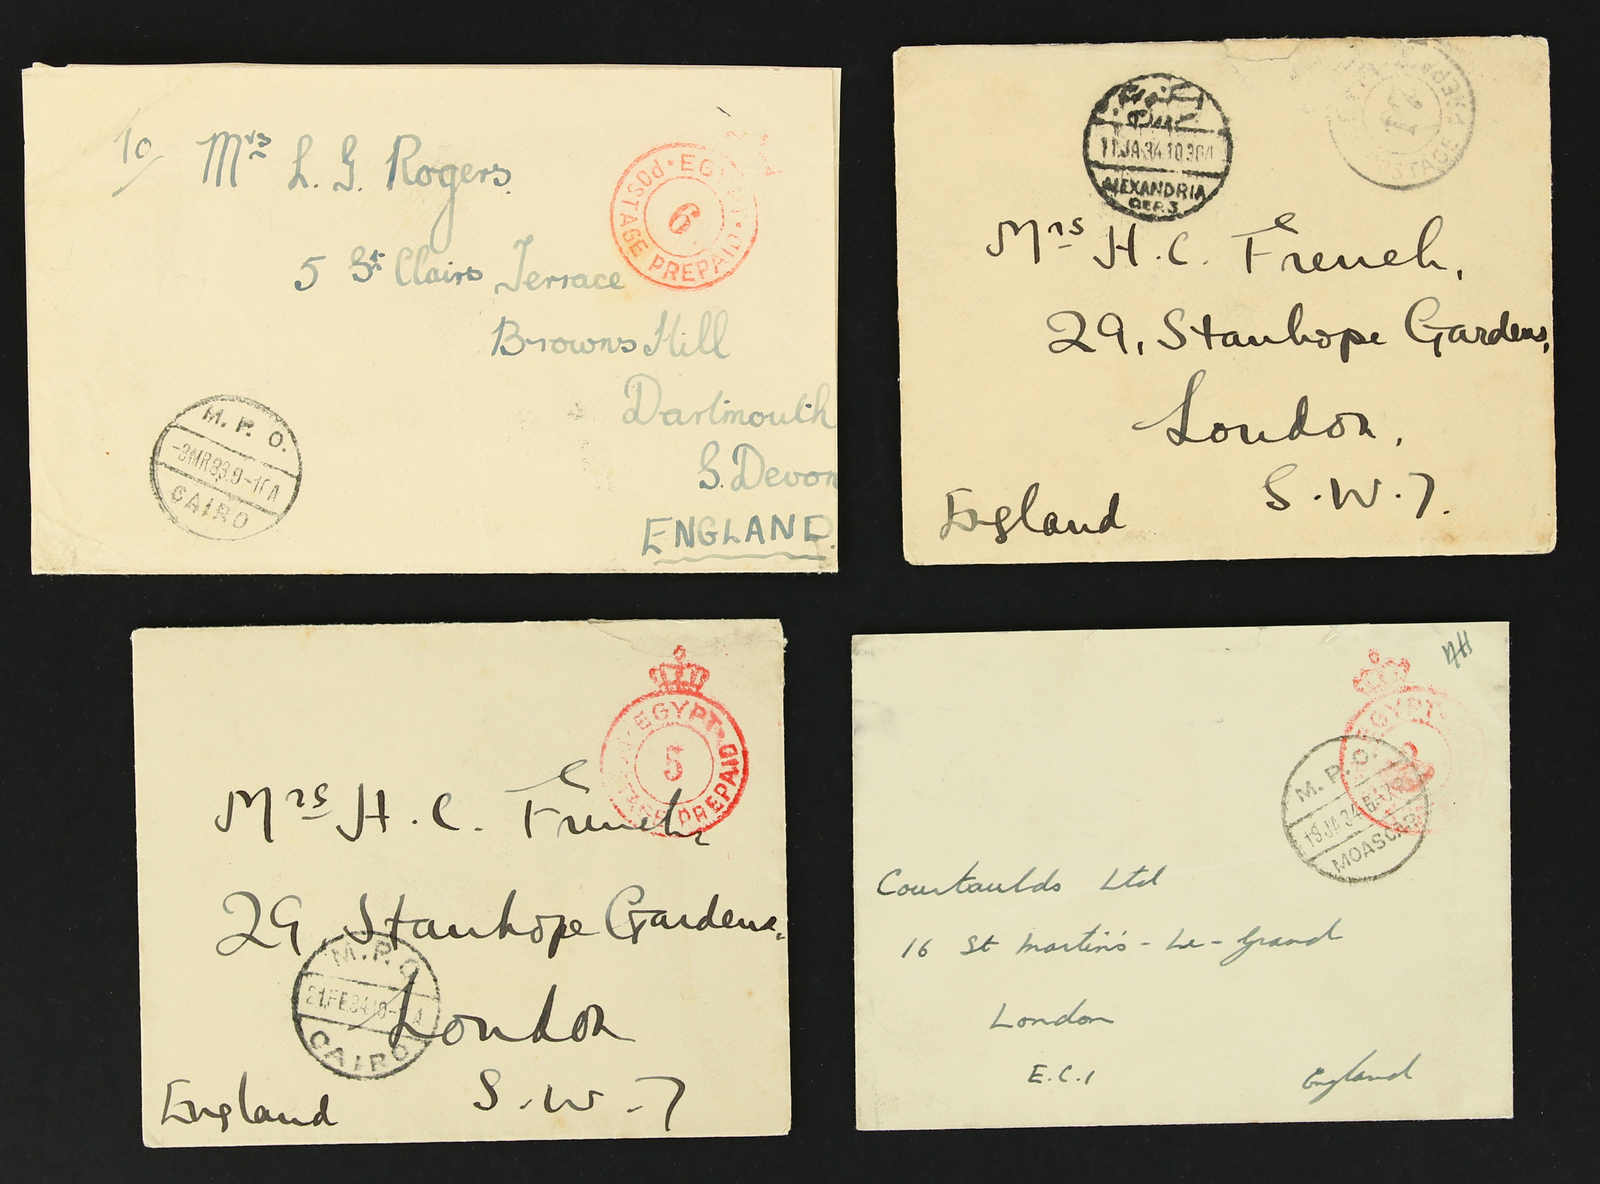 To
Mrs L. G. Rogers.
5 St Clairs Terrace
Browns Hill
Dartmouth
S. Devon
ENGLAND.
EGYPT · POSTAGE PREPAID
6
M. P. O.
CAIRO
اسكندرية
11.JA.34.10.30A
ALEXANDRIA
DEP.3.
POSTAGE PREPAID
Mrs H. C. French,
29, Stanhope Gardens,
London,
S.W.7.
England
· EGYPT · POSTAGE PREPAID
5
Mrs H. C. French,
29, Stanhope Gardens,
London
S.W.7
England
M. P. O.
21.FE.34
CAIRO
EGYPT
M. P. O.
19.JA.34
MOASCAR
Courtaulds Ltd
16 St Martin's-Le-Grand
London
E.C.1
England